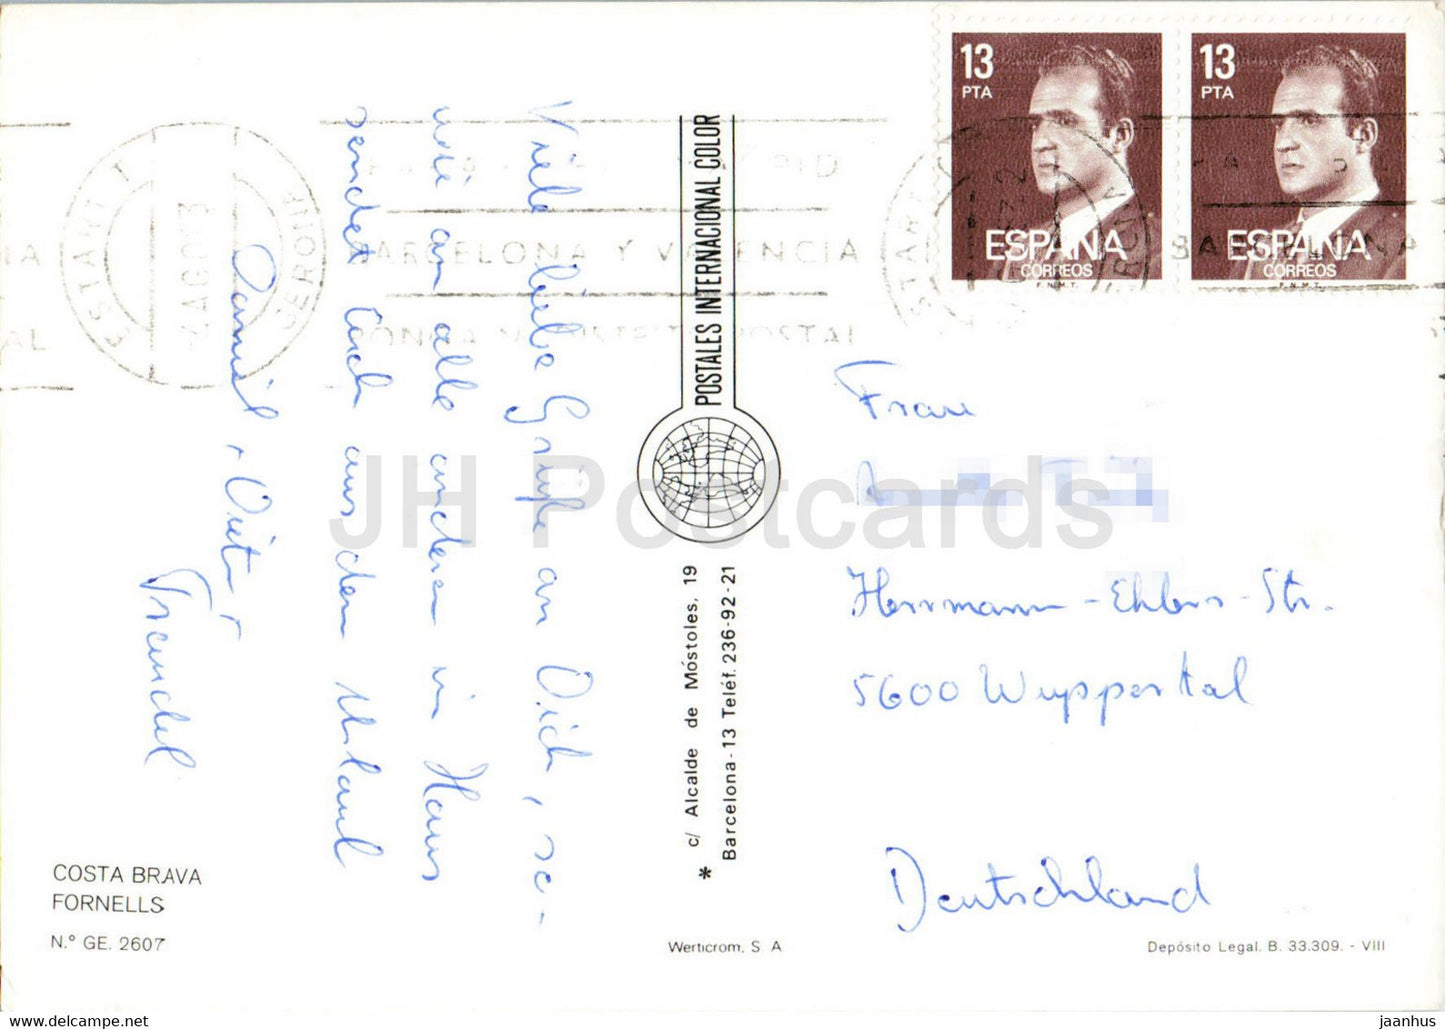 13
PTA
ESPAÑA
CORREOS
F.N.M.T.
13
PTA
ESPAÑA
CORREOS
F.N.M.T.
ESTARTIT
GERONA
BARCELONA Y VALENCIA
POSTAL
Viele liebe Grüße an Dich,
an alle anderen im Haus
sendet Euch aus dem Urlaub
POSTALES INTERNACIONAL COLOR
* c/ Alcalde de Móstoles, 19
Barcelona-13 Teléf. 236-92-21
Frau
Herrmann-Ehlers-Str.
5600 Wuppertal
Deutschland
COSTA BRAVA
FORNELLS
N.º GE. 2607
Werticrom, S A
Depósito Legal. B. 33.309. - VIII
JH Postcards
www.delcampe.net
jaanhus